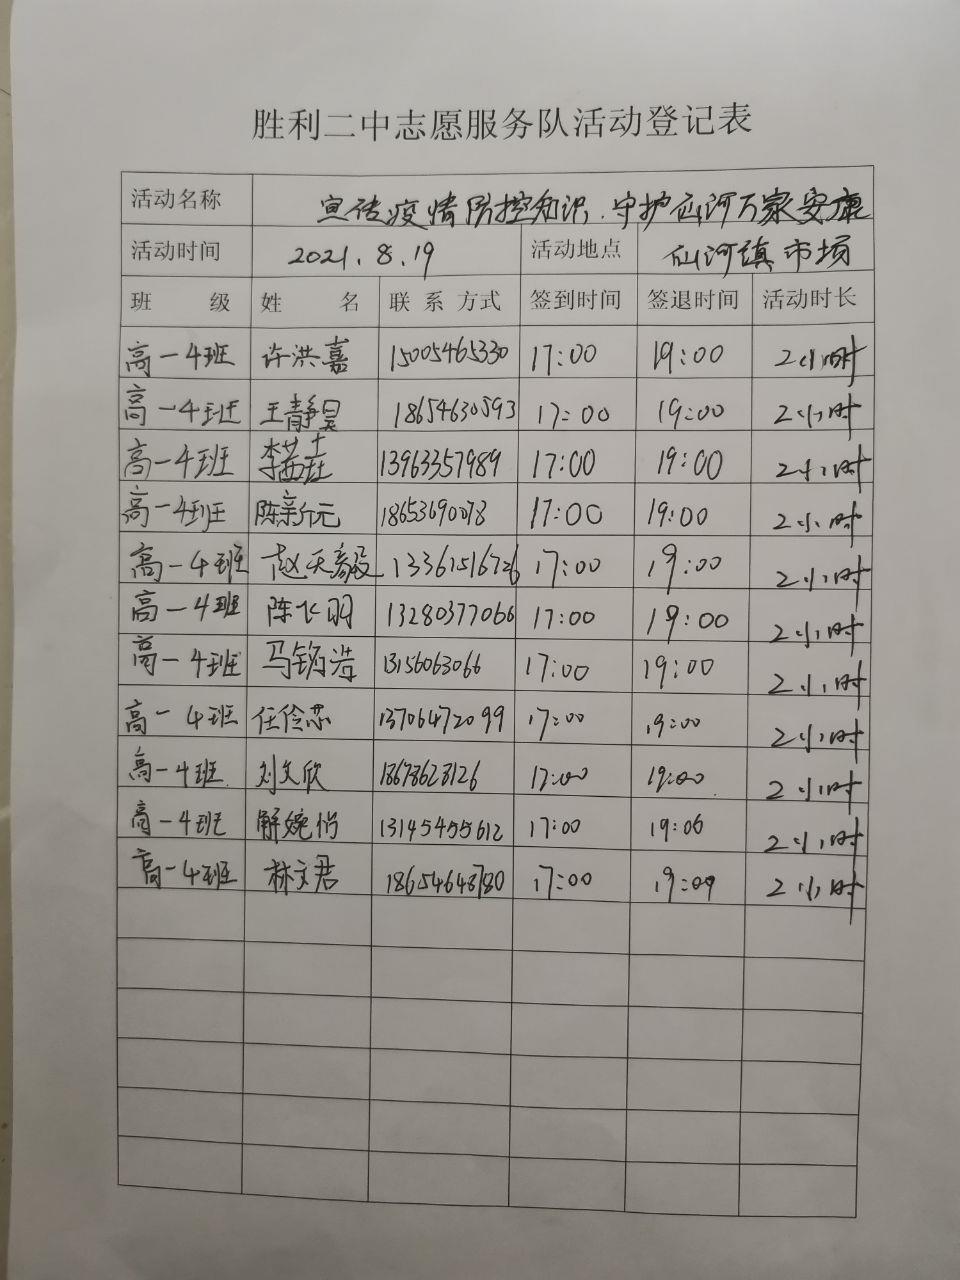 胜利二中志愿服务队活动登记表
活动名称 宣传疫情防控知识.守护仙河万家安康
活动时间 2021.8.19 活动地点 仙河镇市场
班 级 姓 名 联系方式 签到时间 签退时间 活动时长
高一4班 许洪嘉 15005465330 17:00 19:00 2小时
高一4班 王静昊 18654630593 17:00 19:00 2小时
高一4班 李 13963357989 17:00 19:00 2小时
高一4班 陈新元 18653690078 17:00 19:00 2小时
高一4班 赵天毅 13361516726 17:00 19:00 2小时
高一4班 陈长羽 13280377066 17:00 19:00 2小时
高一4班 马 13156063066 17:00 19:00 2小时
高一4班 任 13706472099 17:00 19:00 2小时
高一4班 刘文欣 18678628126 17:00 19:00 2小时
高一4班 解婉怡 13145455612 17:00 19:00 2小时
高一4班 林文君 17:00 19:00 2小时